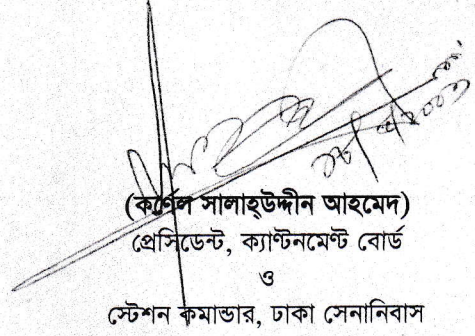 (কর্ণেল সালাহ্উদ্দীন আহমেদ)
প্রেসিডেন্ট, ক্যান্টনমেন্ট বোর্ড
ও
স্টেশন কমান্ডার, ঢাকা সেনানিবাস